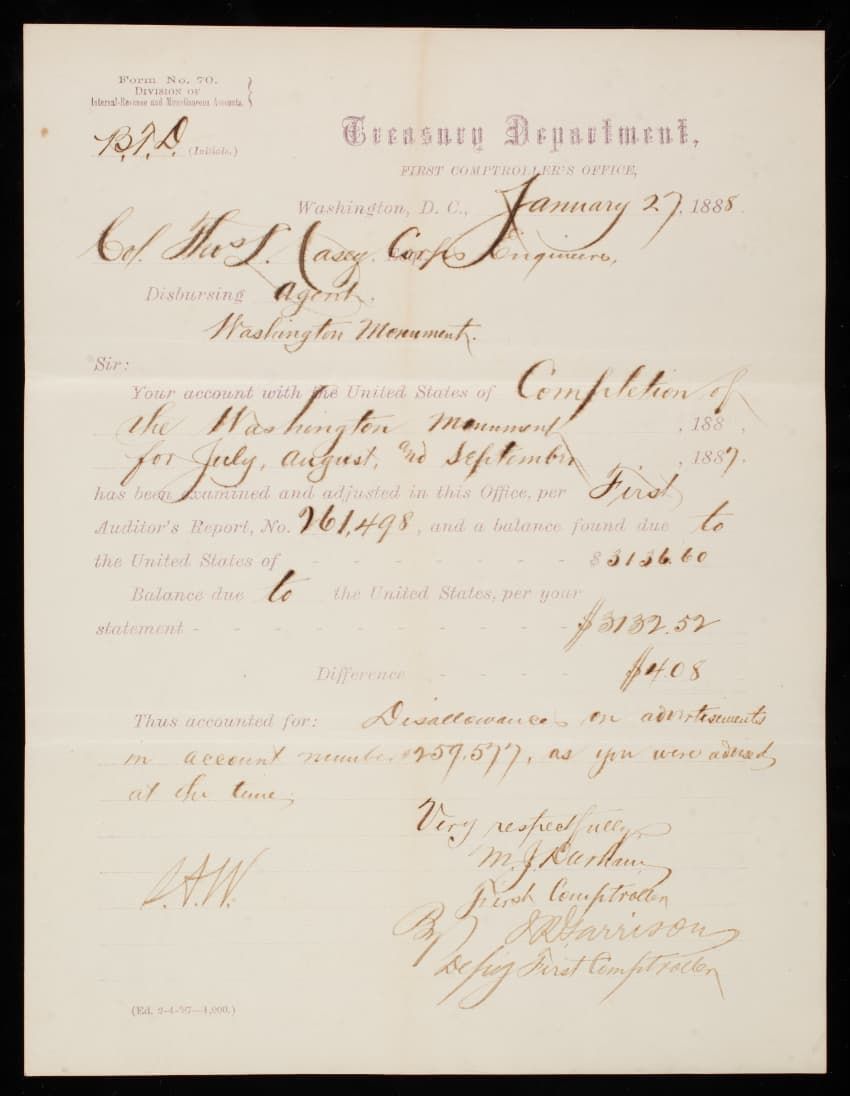 Form No. 70.
Division of
Internal-Revenue and Miscellaneous Accounts.
B.T.D. (Initials.)
Treasury Department,
FIRST COMPTROLLER'S OFFICE,
Washington, D. C., January 27, 1888.
Col. Thos L. Casey. Corps Engineers,
Disbursing Agent.
Washington Monument.
Sir:
Your account with the United States of Completion of
the Washington Monument, 188 ,
for July, August, and September, 1887.
has been examined and adjusted in this Office, per First
Auditor's Report, No. 261,498, and a balance found due to
the United States of - - - - - - $3136.60
Balance due to the United States, per your
statement - - - - - - - - - - $3132.52
Difference - - - - $4.08
Thus accounted for: Disallowances on advertisements
in account number 259,577, as you were advised
at the time.
Very respectfully,
M. J. Durham
First Comptroller
J.A.W.
By J R Garrison
Depty First Comptroller
(Ed. 2-4-'87—1,000.)